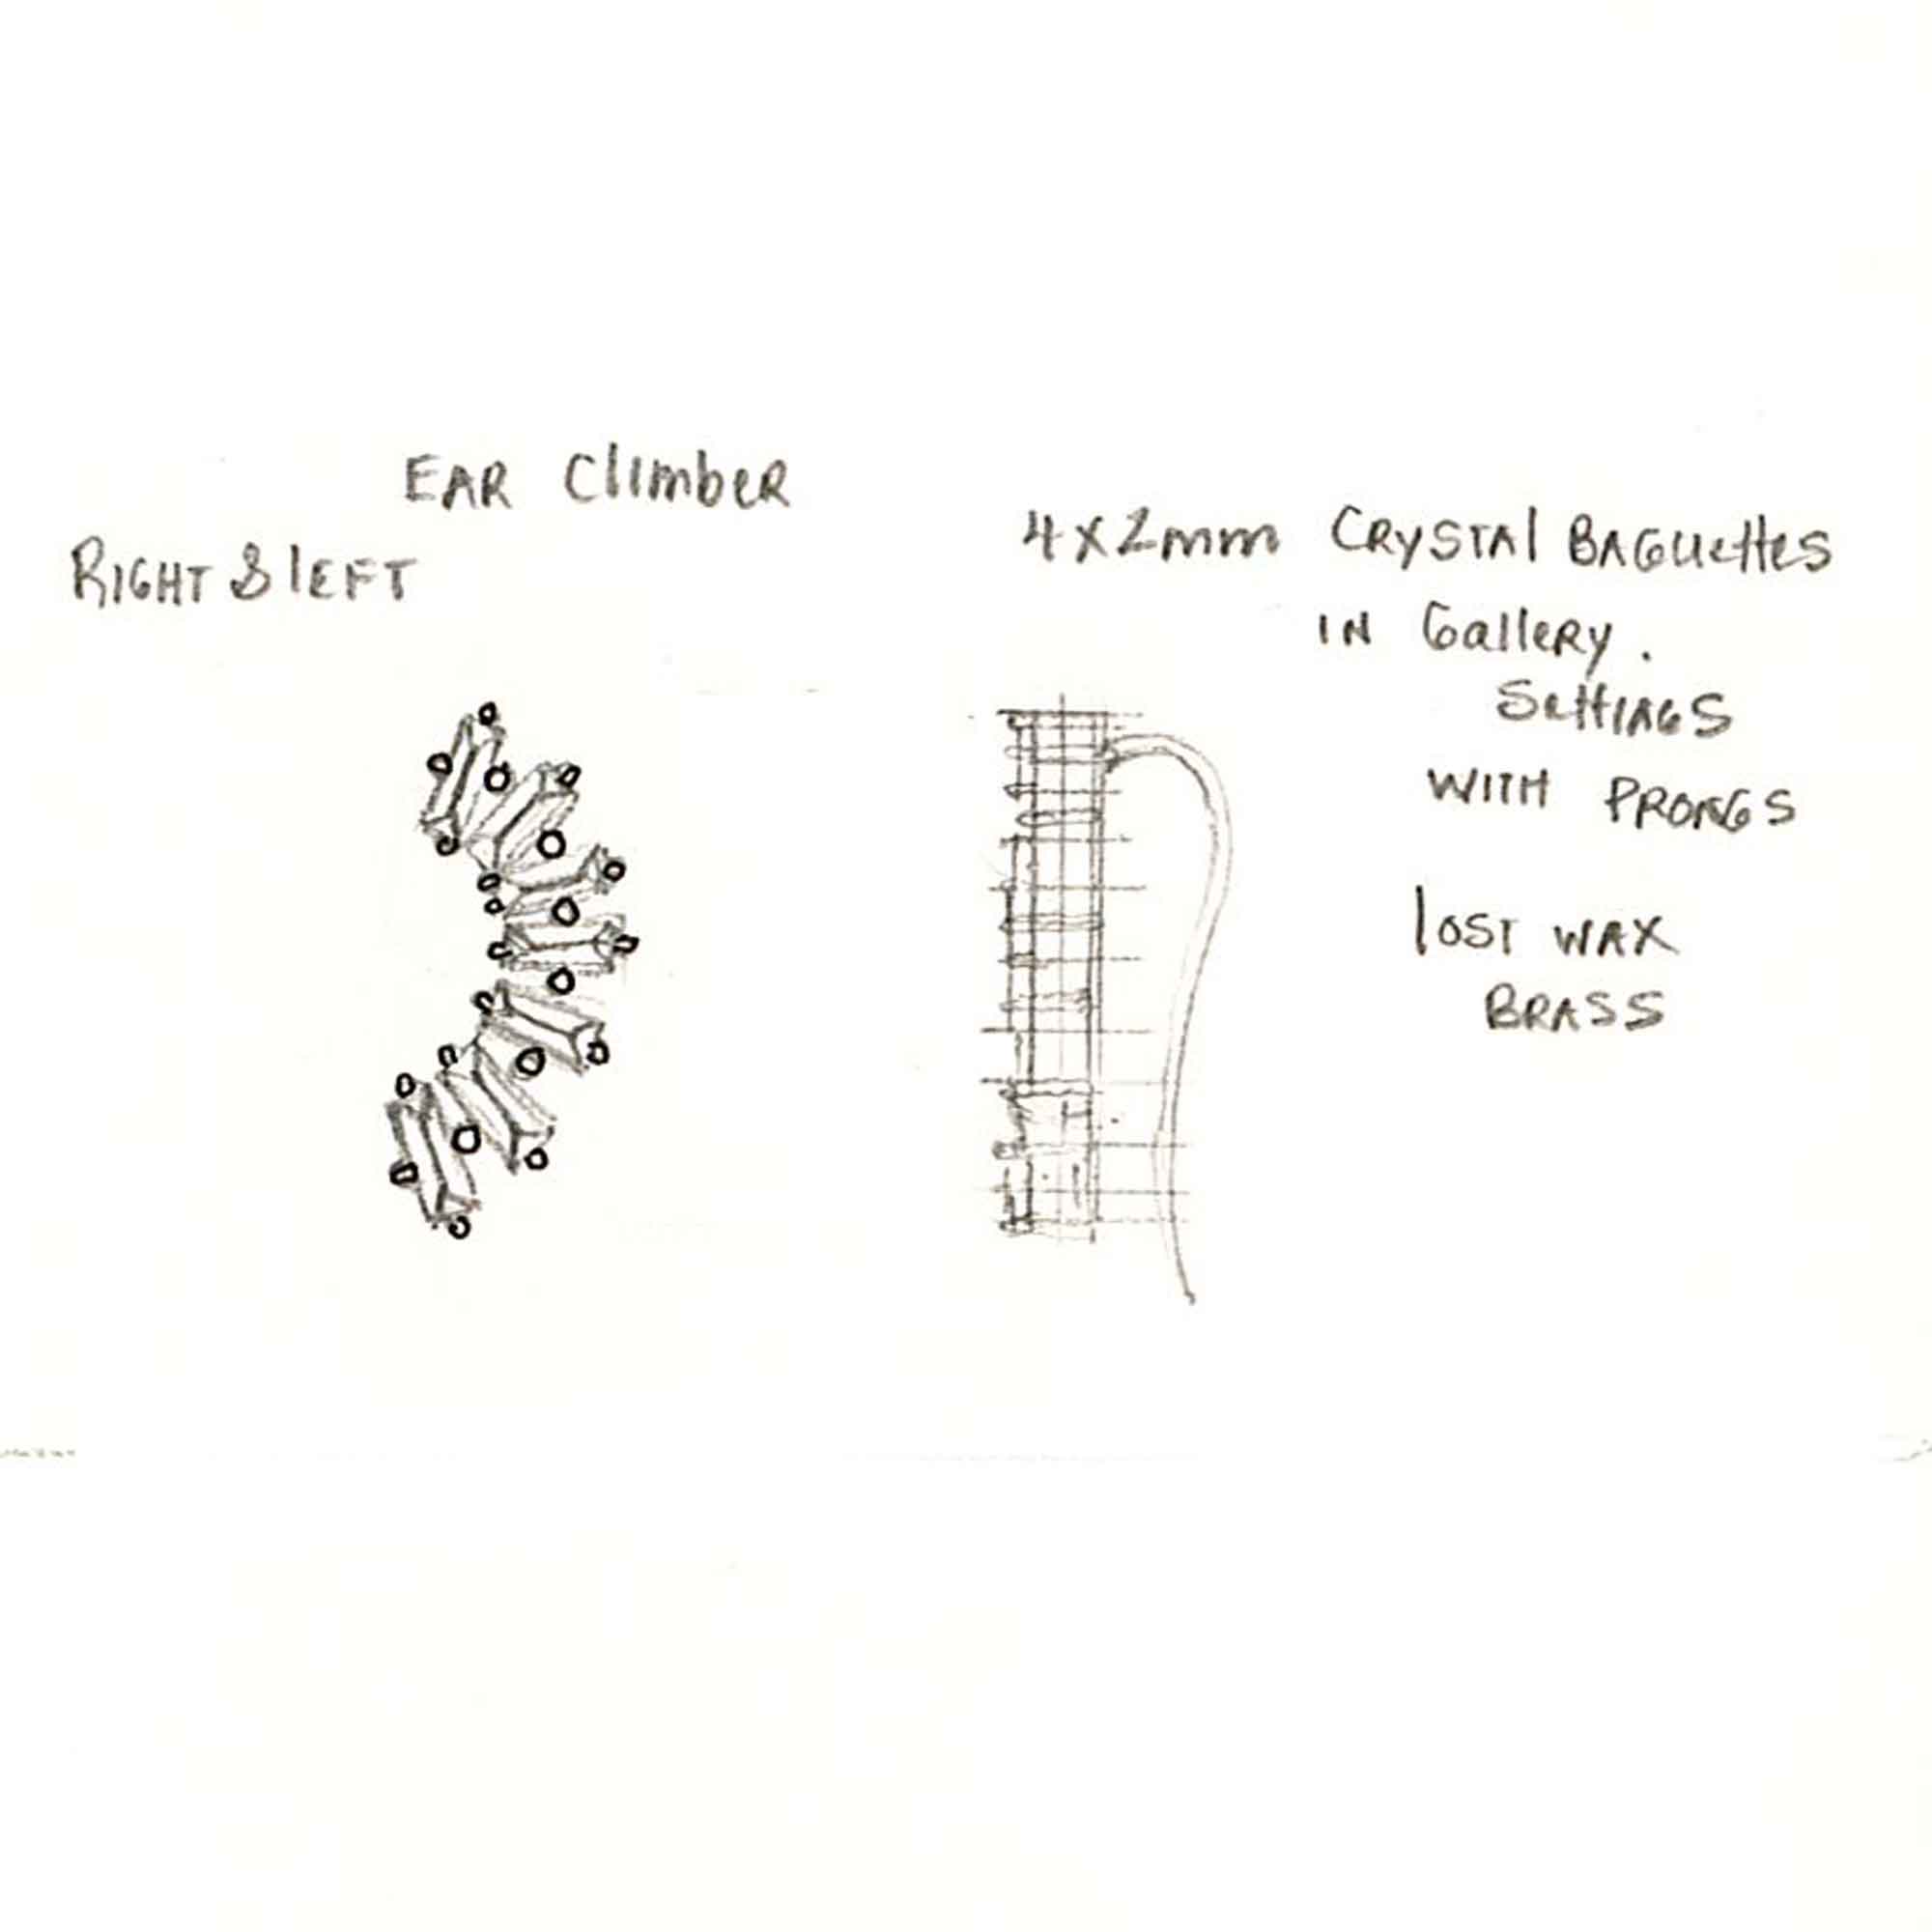 EAR Climber
RIGHT & lEFT
4x2mm CRYSTAl BAGuettes
IN GallERy.
SettINGS
WITH PRONGS
lOST WAX
BRASS